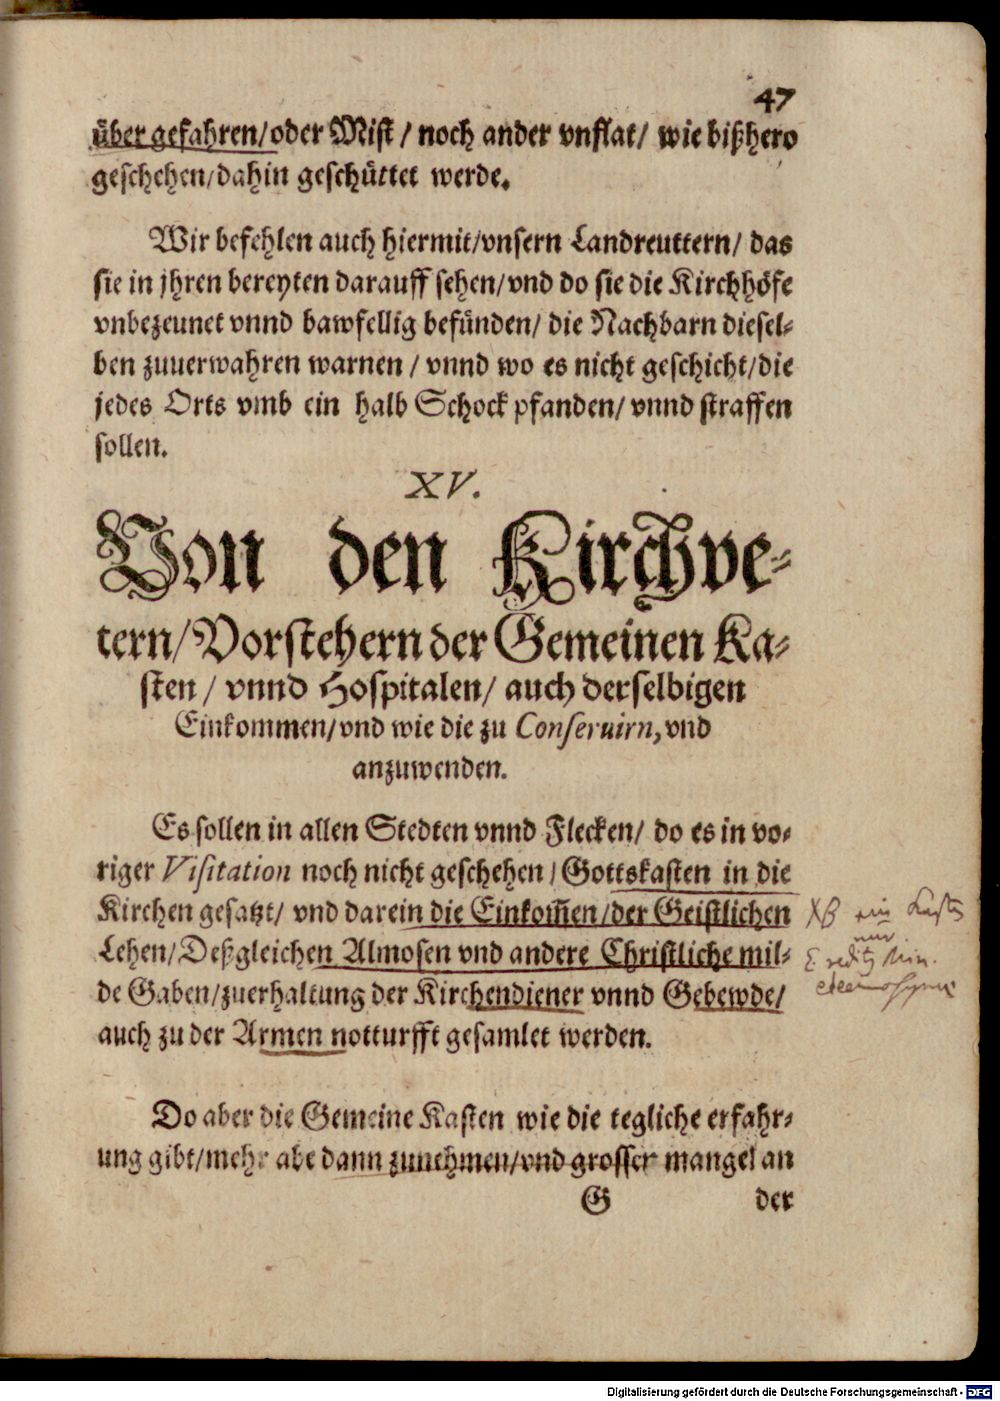 47
über gefahren/oder Mist / noch ander vnflat/ wie bißhero
geschehen/dahin geschüttet werde.
Wir befehlen auch hiermit/vnsern Landreuttern/ das
sie in jhren bereyten darauff sehen/vnd do sie die Kirchhöfe
vnbezeunet vnnd bawfellig befünden/ die Nachbarn diesel-
ben zuuerwahren warnen / vnnd wo es nicht geschicht/die
jedes Orts vmb ein halb Schock pfanden/ vnnd straffen
sollen.
XV.
Von den Kirchve-
tern/Vorstehern der Gemeinen Ka-
sten / vnnd Hospitalen/ auch derselbigen
Einkommen/vnd wie die zu Conseruirn, vnd
anzuwenden.
Es sollen in allen Stedten vnnd Flecken/ do es in vo-
riger Visitation noch nicht geschehen / Gottskasten in die
Kirchen gesatzt/ vnd darein die Einkom̃en/der Geistlichen
Lehen/Deßgleichen Almosen vnd andere Christliche mil-
de Gaben/zuerhaltung der Kirchendiener vnnd Gebewde/
auch zu der Armen notturfft gesamlet werden.
Do aber die Gemeine Kasten wie die tegliche erfahr-
ung gibt/mehr abe dann zunehmen/vnd grosser mangel an
G der
Digitalisierung gefördert durch die Deutsche Forschungsgemeinschaft - DFG